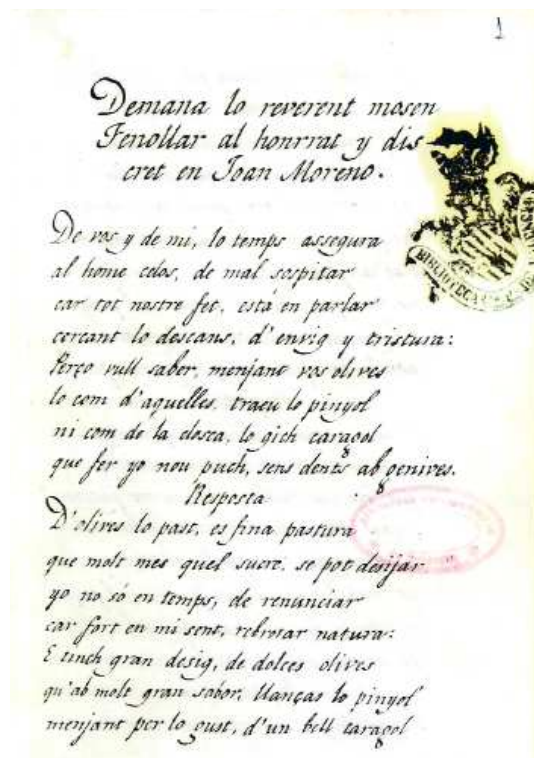 1
Demana lo reverent mosen
Fenollar al honrrat y dis
cret en Joan Moreno.
De vos y de mi, lo temps assegura
al home celos, de mal sospitar
car tot nostre fet, està en parlar
cercant lo descans, d'enuig y tristura:
Perço vull saber, menjant vos olives
lo com d'aquelles, traeu lo pinyol
ni com de la closca, lo gich caragol
que fer yo nou puch, sens dents ab genives.
Resposta
D'olives lo past, es fina pastura
que molt mes quel sucre, se pot desijar
yo no só en temps, de renunciar
car fort en mi sent, rebrotar natura:
E tinch gran desig, de dolces olives
qu'ab molt gran sabor, llanças lo pinyol
menjant per lo gust, d'un bell caragol
BIBLIOTECA